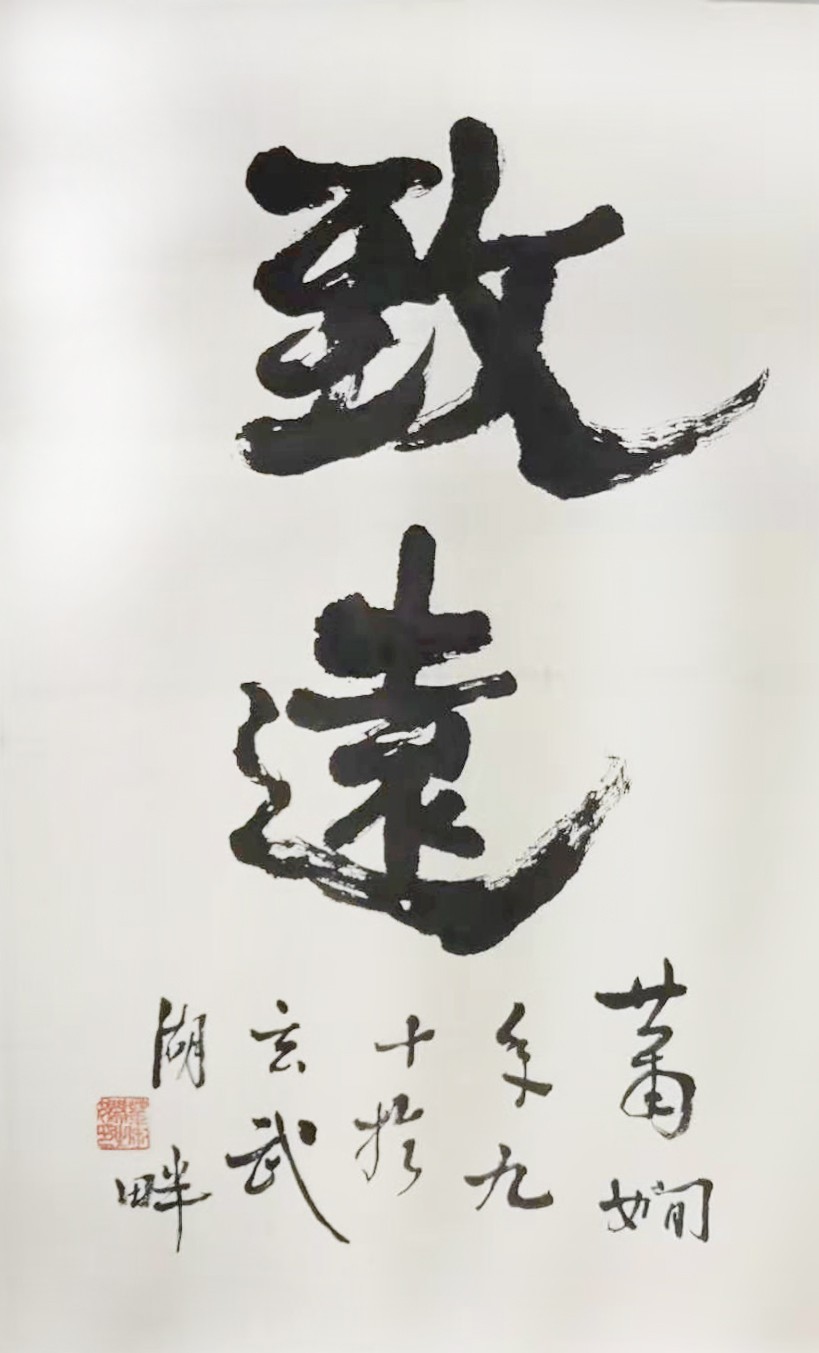 致遠
蕭嫺
年九
十於
玄武
湖畔